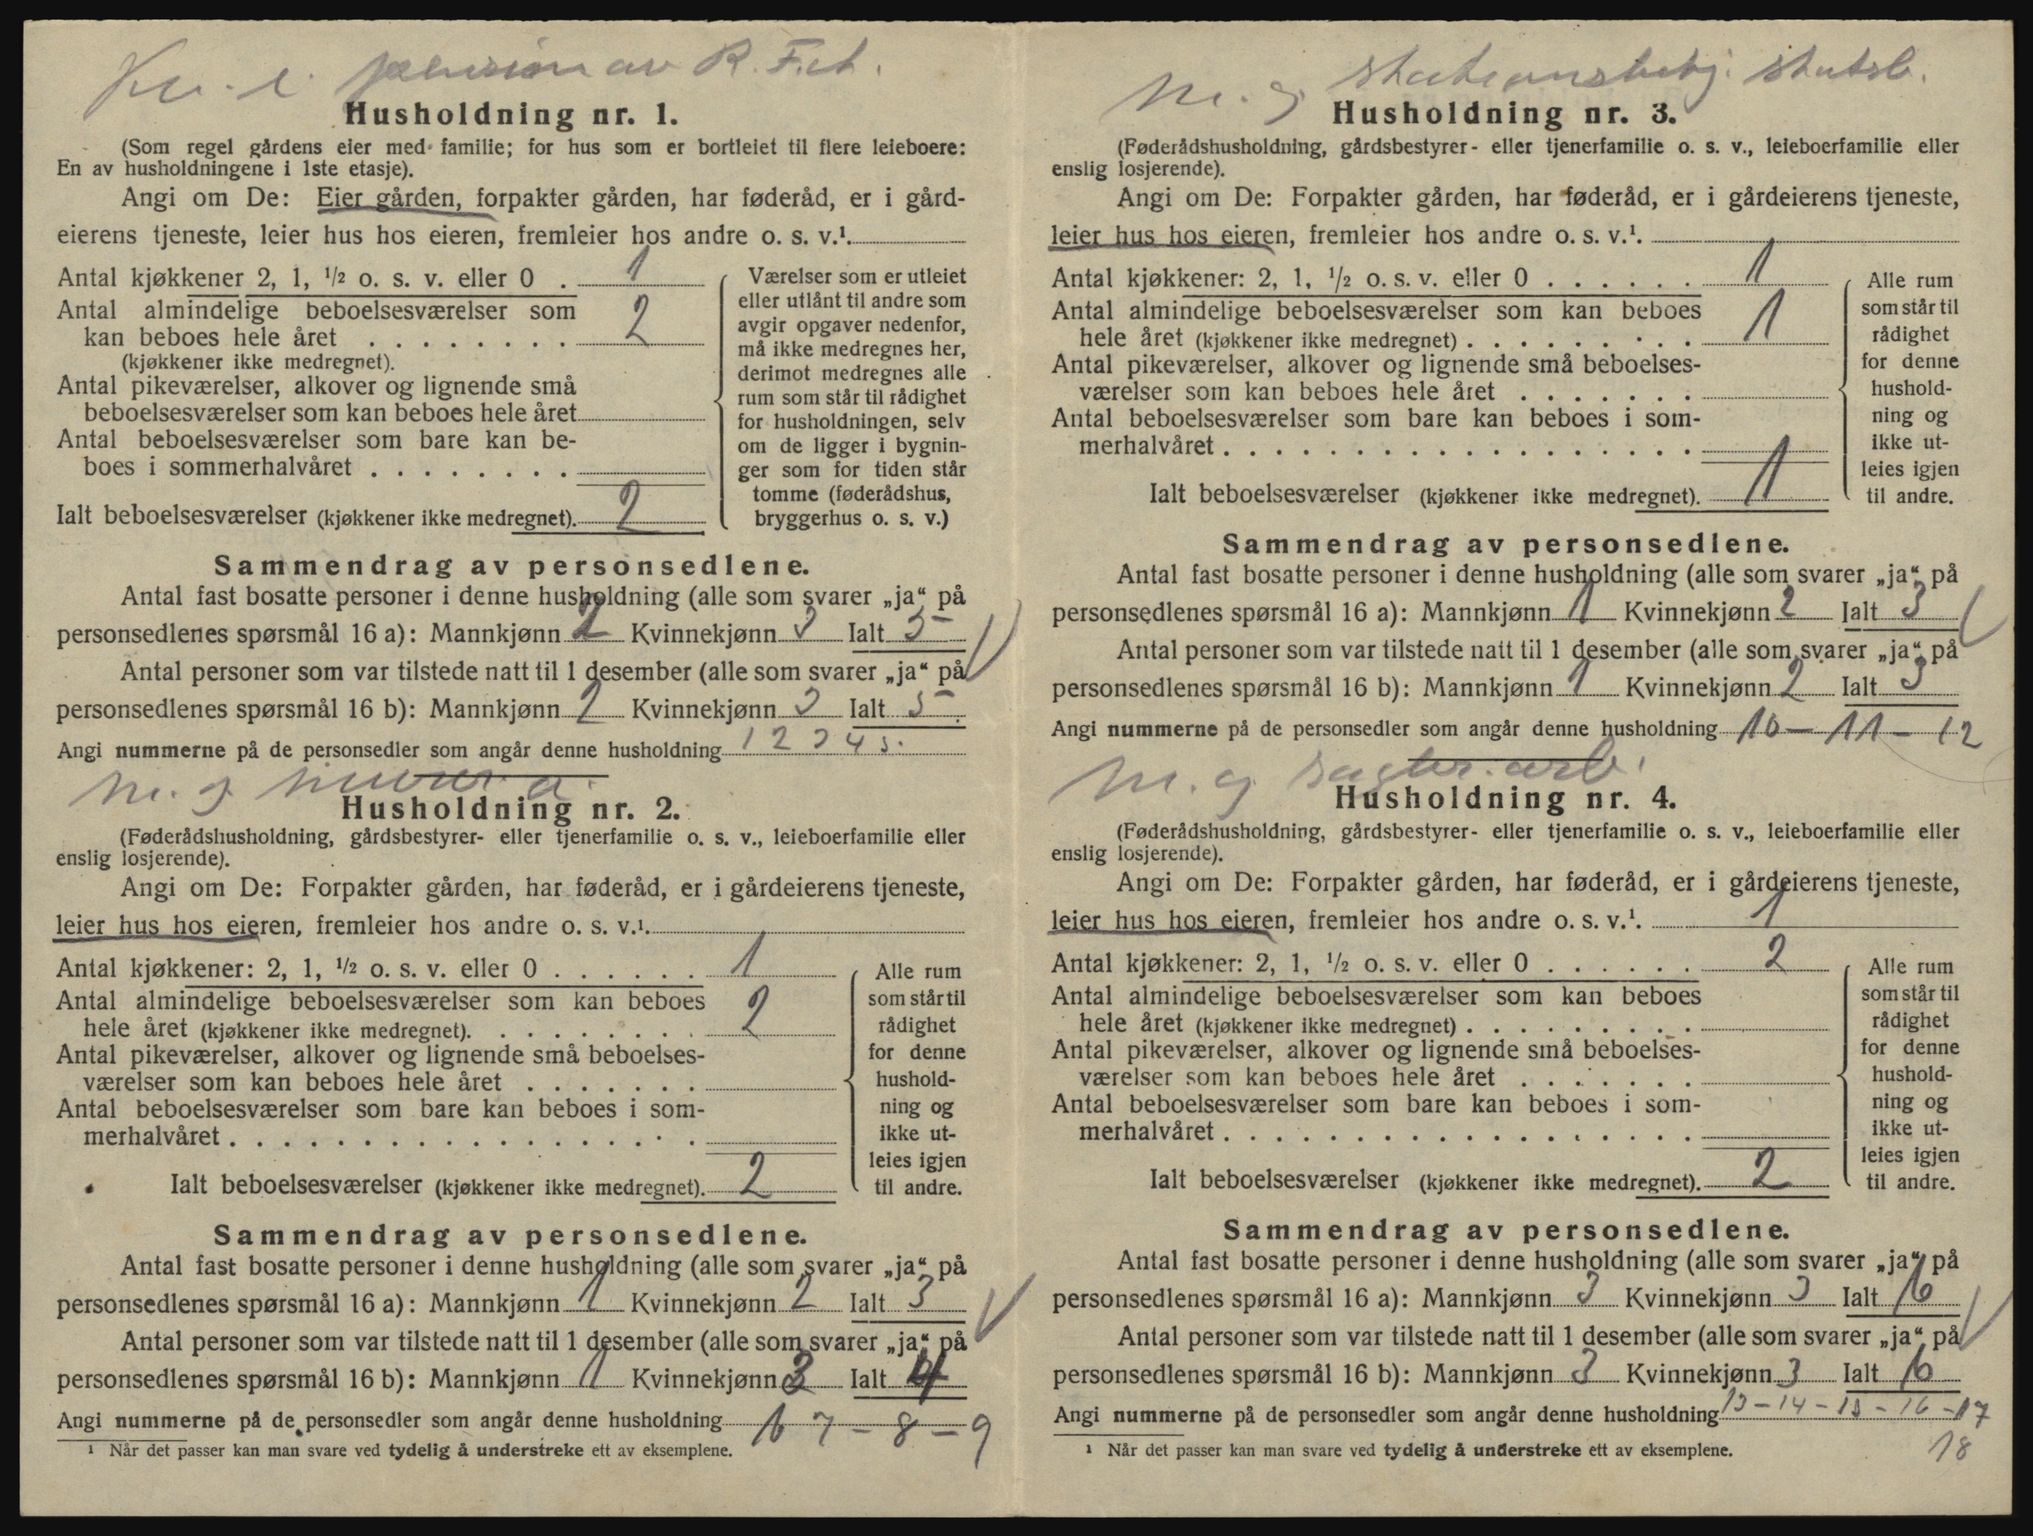 pension av R. F.
Husholdning nr. 1.
(Som regel gårdens eier med familie; for hus som er bortleiet til flere leieboere:
En av husholdningene i 1ste etasje).
Angi om De: Eier gården, forpakter gården, har føderåd, er i gård-
eierens tjeneste, leier hus hos eieren, fremleier hos andre o. s. v.¹.
Antal kjøkkener 2, 1, ½ o. s. v. eller 0 . 1
Antal almindelige beboelsesværelser som
kan beboes hele året . . . . . . . . 2
(kjøkkener ikke medregnet).
Antal pikeværelser, alkover og lignende små
beboelsesværelser som kan beboes hele året
Antal beboelsesværelser som bare kan be-
boes i sommerhalvåret . . . . . . . .
Ialt beboelsesværelser (kjøkkener ikke medregnet). 2
Værelser som er utleiet
eller utlånt til andre som
avgir opgaver nedenfor,
må ikke medregnes her,
derimot medregnes alle
rum som står til rådighet
for husholdningen, selv
om de ligger i bygnin-
ger som for tiden står
tomme (føderådshus,
bryggerhus o. s. v.)
Sammendrag av personsedlene.
Antal fast bosatte personer i denne husholdning (alle som svarer „ja“ på
personsedlenes spørsmål 16 a): Mannkjønn 2 Kvinnekjønn 3 Ialt 5
Antal personer som var tilstede natt til 1 desember (alle som svarer „ja“ på
personsedlenes spørsmål 16 b): Mannkjønn 2 Kvinnekjønn 3 Ialt 5
Angi nummerne på de personsedler som angår denne husholdning 1 2 3 4 5.
m. g. murer a.
Husholdning nr. 2.
(Føderådshusholdning, gårdsbestyrer- eller tjenerfamilie o. s. v., leieboerfamilie eller
enslig losjerende).
Angi om De: Forpakter gården, har føderåd, er i gårdeierens tjeneste,
leier hus hos eieren, fremleier hos andre o. s. v.¹.
Antal kjøkkener: 2, 1, ½ o. s. v. eller 0 . . . . . . 1
Antal almindelige beboelsesværelser som kan beboes
hele året (kjøkkener ikke medregnet). . . . . . . . . 2
Antal pikeværelser, alkover og lignende små beboelses-
værelser som kan beboes hele året . . . . . . .
Antal beboelsesværelser som bare kan beboes i som-
merhalvåret . . . . . . . . . . . . . . . . . .
Ialt beboelsesværelser (kjøkkener ikke medregnet). 2
Alle rum
som står til
rådighet
for denne
hushold-
ning og
ikke ut-
leies igjen
til andre.
Sammendrag av personsedlene.
Antal fast bosatte personer i denne husholdning (alle som svarer „ja“ på
personsedlenes spørsmål 16 a): Mannkjønn 1 Kvinnekjønn 2 Ialt 3
Antal personer som var tilstede natt til 1 desember (alle som svarer „ja“ på
personsedlenes spørsmål 16 b): Mannkjønn 1 Kvinnekjønn 3 Ialt 4
Angi nummerne på de personsedler som angår denne husholdning 6 7 - 8 - 9
¹ Når det passer kan man svare ved tydelig å understreke ett av eksemplene.
m. g. stasjonsbetj. statsb.
Husholdning nr. 3.
(Føderådshusholdning, gårdsbestyrer- eller tjenerfamilie o. s. v., leieboerfamilie eller
enslig losjerende).
Angi om De: Forpakter gården, har føderåd, er i gårdeierens tjeneste,
leier hus hos eieren, fremleier hos andre o. s. v.¹.
Antal kjøkkener: 2, 1, ½ o. s. v. eller 0 . . . . . . 1
Antal almindelige beboelsesværelser som kan beboes
hele året (kjøkkener ikke medregnet) . . . . . . . . . 1
Antal pikeværelser, alkover og lignende små beboelses-
værelser som kan beboes hele året . . . . . . .
Antal beboelsesværelser som bare kan beboes i som-
merhalvåret . . . . . . . . . . . . . . . . . .
Ialt beboelsesværelser (kjøkkener ikke medregnet). 1
Alle rum
som står til
rådighet
for denne
hushold-
ning og
ikke ut-
leies igjen
til andre.
Sammendrag av personsedlene.
Antal fast bosatte personer i denne husholdning (alle som svarer „ja“ på
personsedlenes spørsmål 16 a): Mannkjønn 1 Kvinnekjønn 2 Ialt 3
Antal personer som var tilstede natt til 1 desember (alle som svarer „ja“ på
personsedlenes spørsmål 16 b): Mannkjønn 1 Kvinnekjønn 2 Ialt 3
Angi nummerne på de personsedler som angår denne husholdning 10 - 11 - 12
m. g. sagbr. arb.
Husholdning nr. 4.
(Føderådshusholdning, gårdsbestyrer- eller tjenerfamilie o. s. v., leieboerfamilie eller
enslig losjerende).
Angi om De: Forpakter gården, har føderåd, er i gårdeierens tjeneste,
leier hus hos eieren, fremleier hos andre o. s. v.¹. 1
Antal kjøkkener: 2, 1, ½ o. s. v. eller 0 . . . . . . 2
Antal almindelige beboelsesværelser som kan beboes
hele året (kjøkkener ikke medregnet) . . . . . . . . .
Antal pikeværelser, alkover og lignende små beboelses-
værelser som kan beboes hele året . . . . . . .
Antal beboelsesværelser som bare kan beboes i som-
merhalvåret . . . . . . . . . . . . . . . . . .
Ialt beboelsesværelser (kjøkkener ikke medregnet). 2
Alle rum
som står til
rådighet
for denne
hushold-
ning og
ikke ut-
leies igjen
til andre.
Sammendrag av personsedlene.
Antal fast bosatte personer i denne husholdning (alle som svarer „ja“ på
personsedlenes spørsmål 16 a): Mannkjønn 3 Kvinnekjønn 3 Ialt 6
Antal personer som var tilstede natt til 1 desember (alle som svarer „ja“ på
personsedlenes spørsmål 16 b): Mannkjønn 3 Kvinnekjønn 3 Ialt 6
Angi nummerne på de personsedler som angår denne husholdning 13 - 14 - 15 - 16 - 17
18
¹ Når det passer kan man svare ved tydelig å understreke ett av eksemplene.